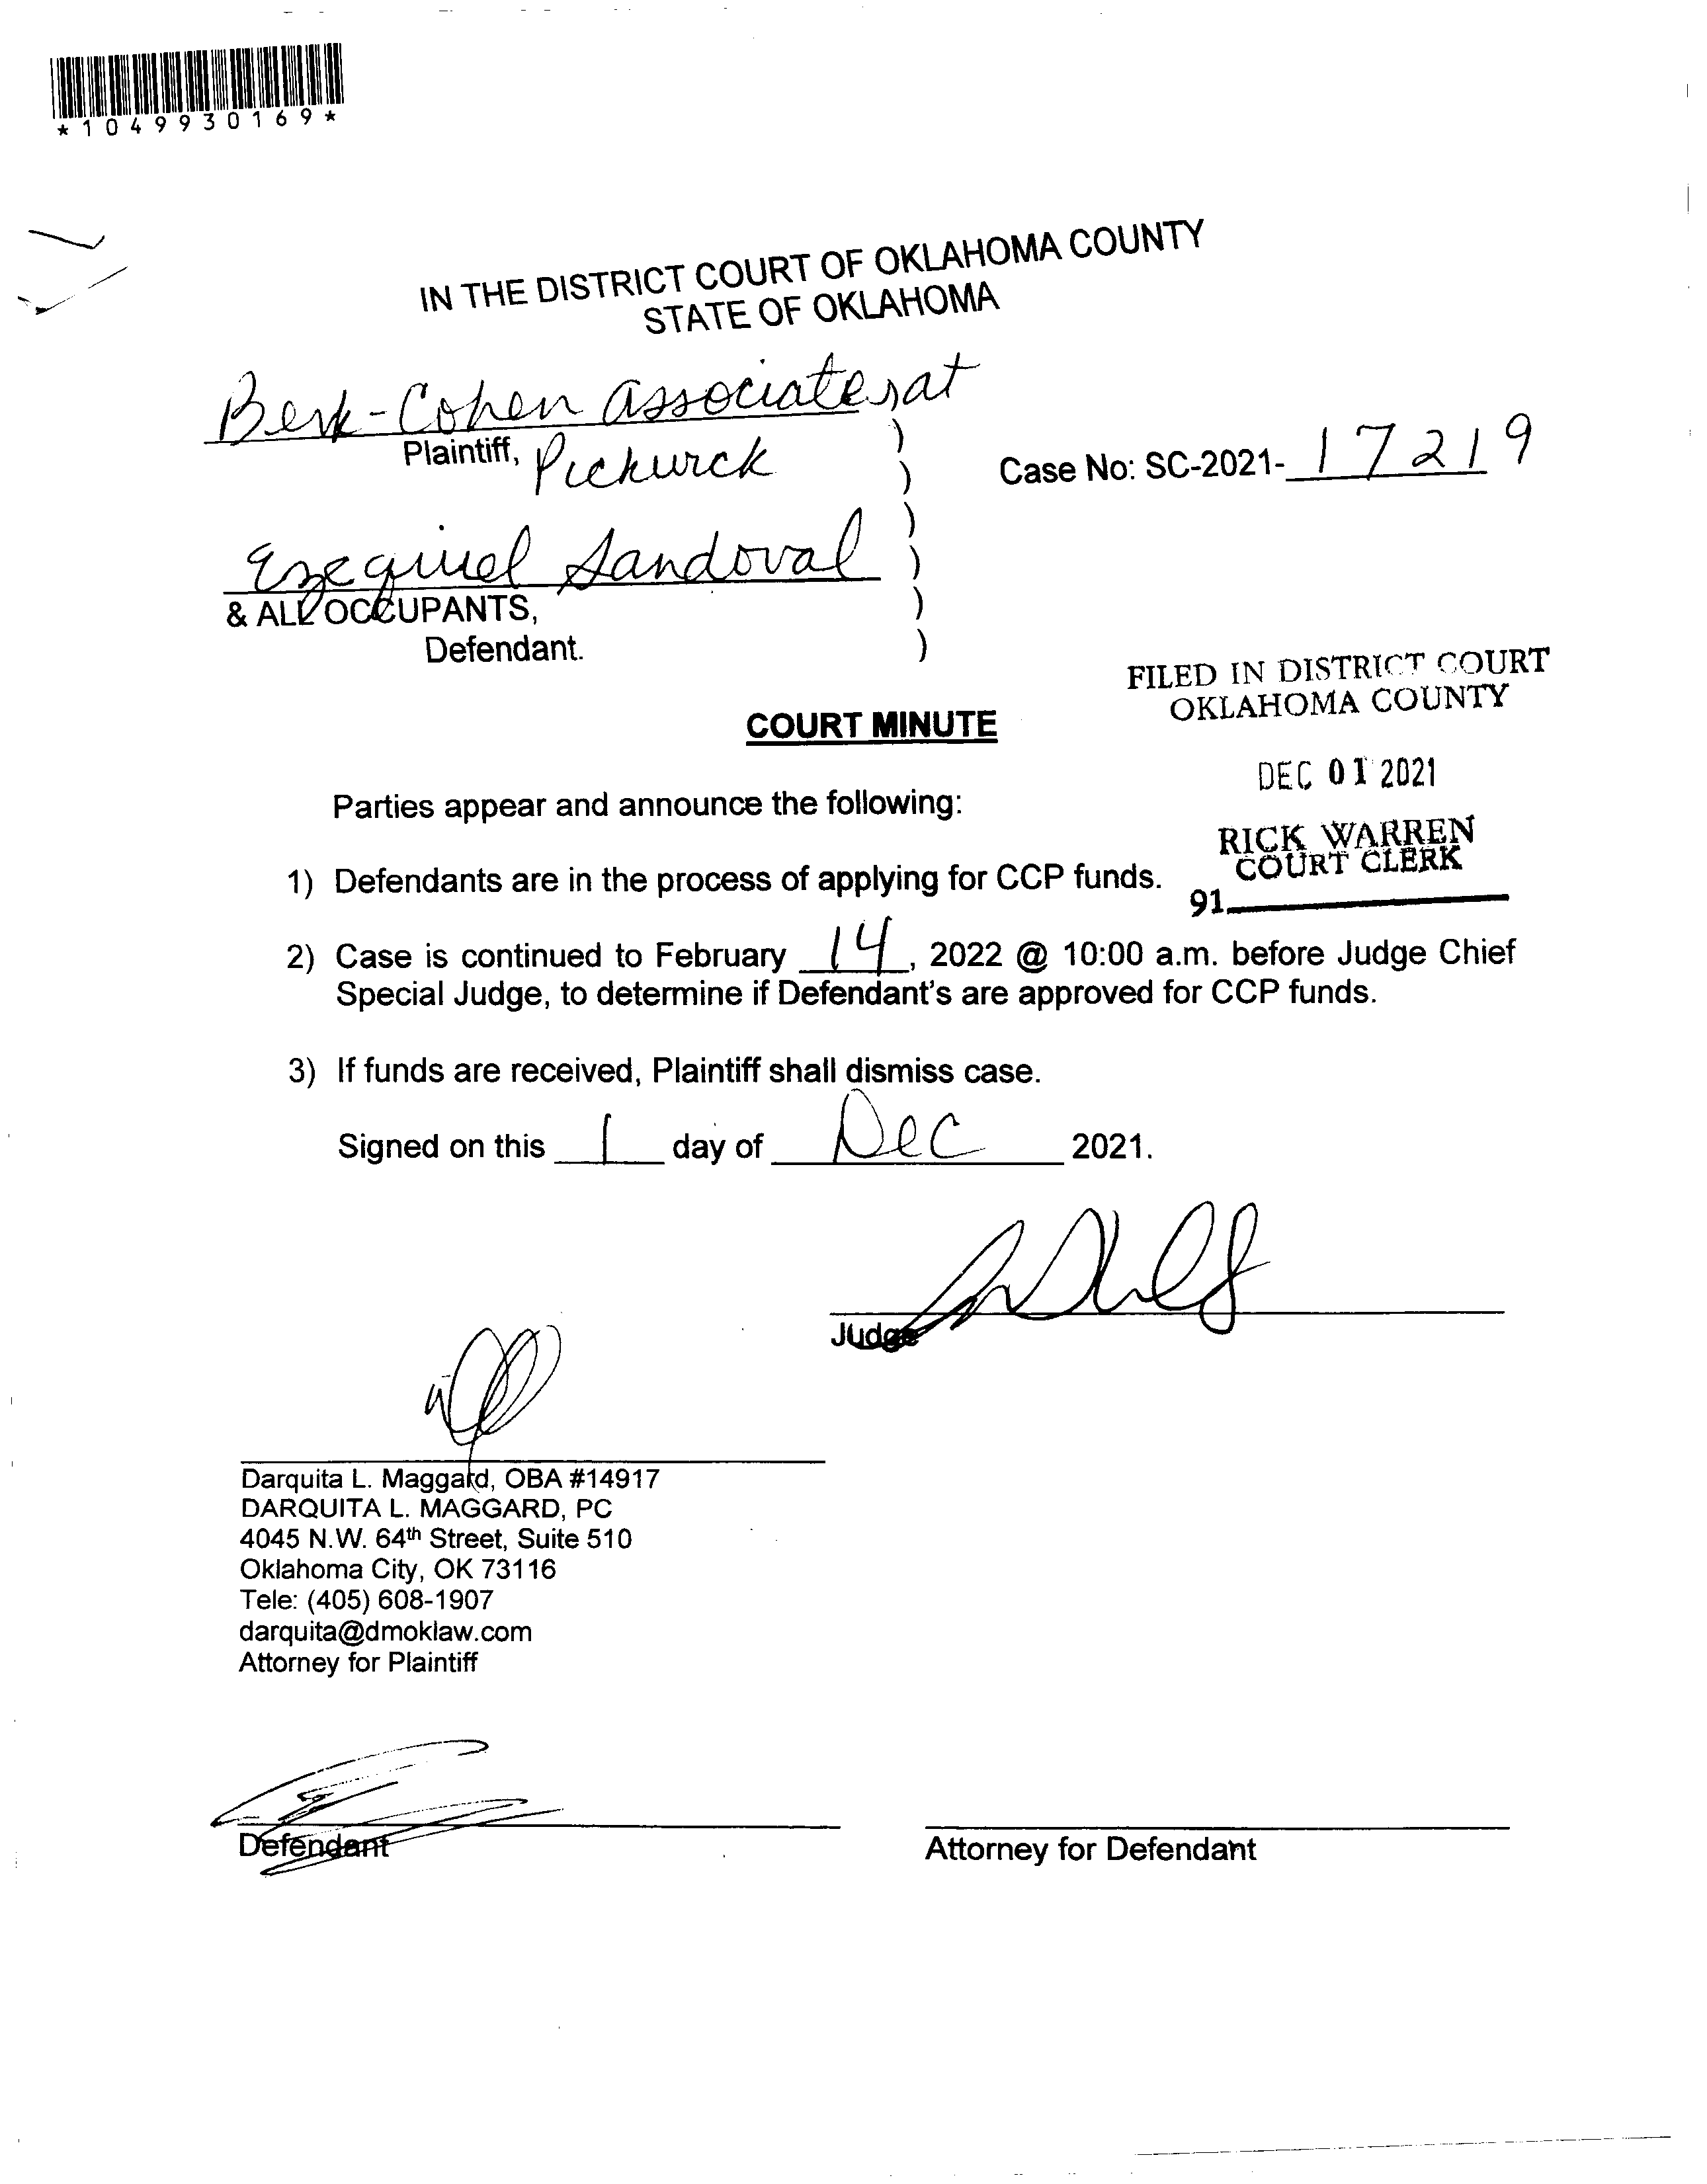 *1049930169*
IN THE DISTRICT COURT OF OKLAHOMA COUNTY
STATE OF OKLAHOMA
Berk-Cohen Associates at
Plaintiff, Pickwick
Case No: SC-2021- 17219
Ezequiel Sandoval
& ALL OCCUPANTS,
Defendant.
)
)
)
)
)
)
FILED IN DISTRICT COURT
OKLAHOMA COUNTY
DEC 01 2021
RICK WARREN
COURT CLERK
91
COURT MINUTE
Parties appear and announce the following:
1) Defendants are in the process of applying for CCP funds.
2) Case is continued to February 14, 2022 @ 10:00 a.m. before Judge Chief
Special Judge, to determine if Defendant's are approved for CCP funds.
3) If funds are received, Plaintiff shall dismiss case.
Signed on this 1 day of Dec 2021.
Judge
Darquita L. Maggard, OBA #14917
DARQUITA L. MAGGARD, PC
4045 N.W. 64th Street, Suite 510
Oklahoma City, OK 73116
Tele: (405) 608-1907
darquita@dmoklaw.com
Attorney for Plaintiff
Defendant
Attorney for Defendant